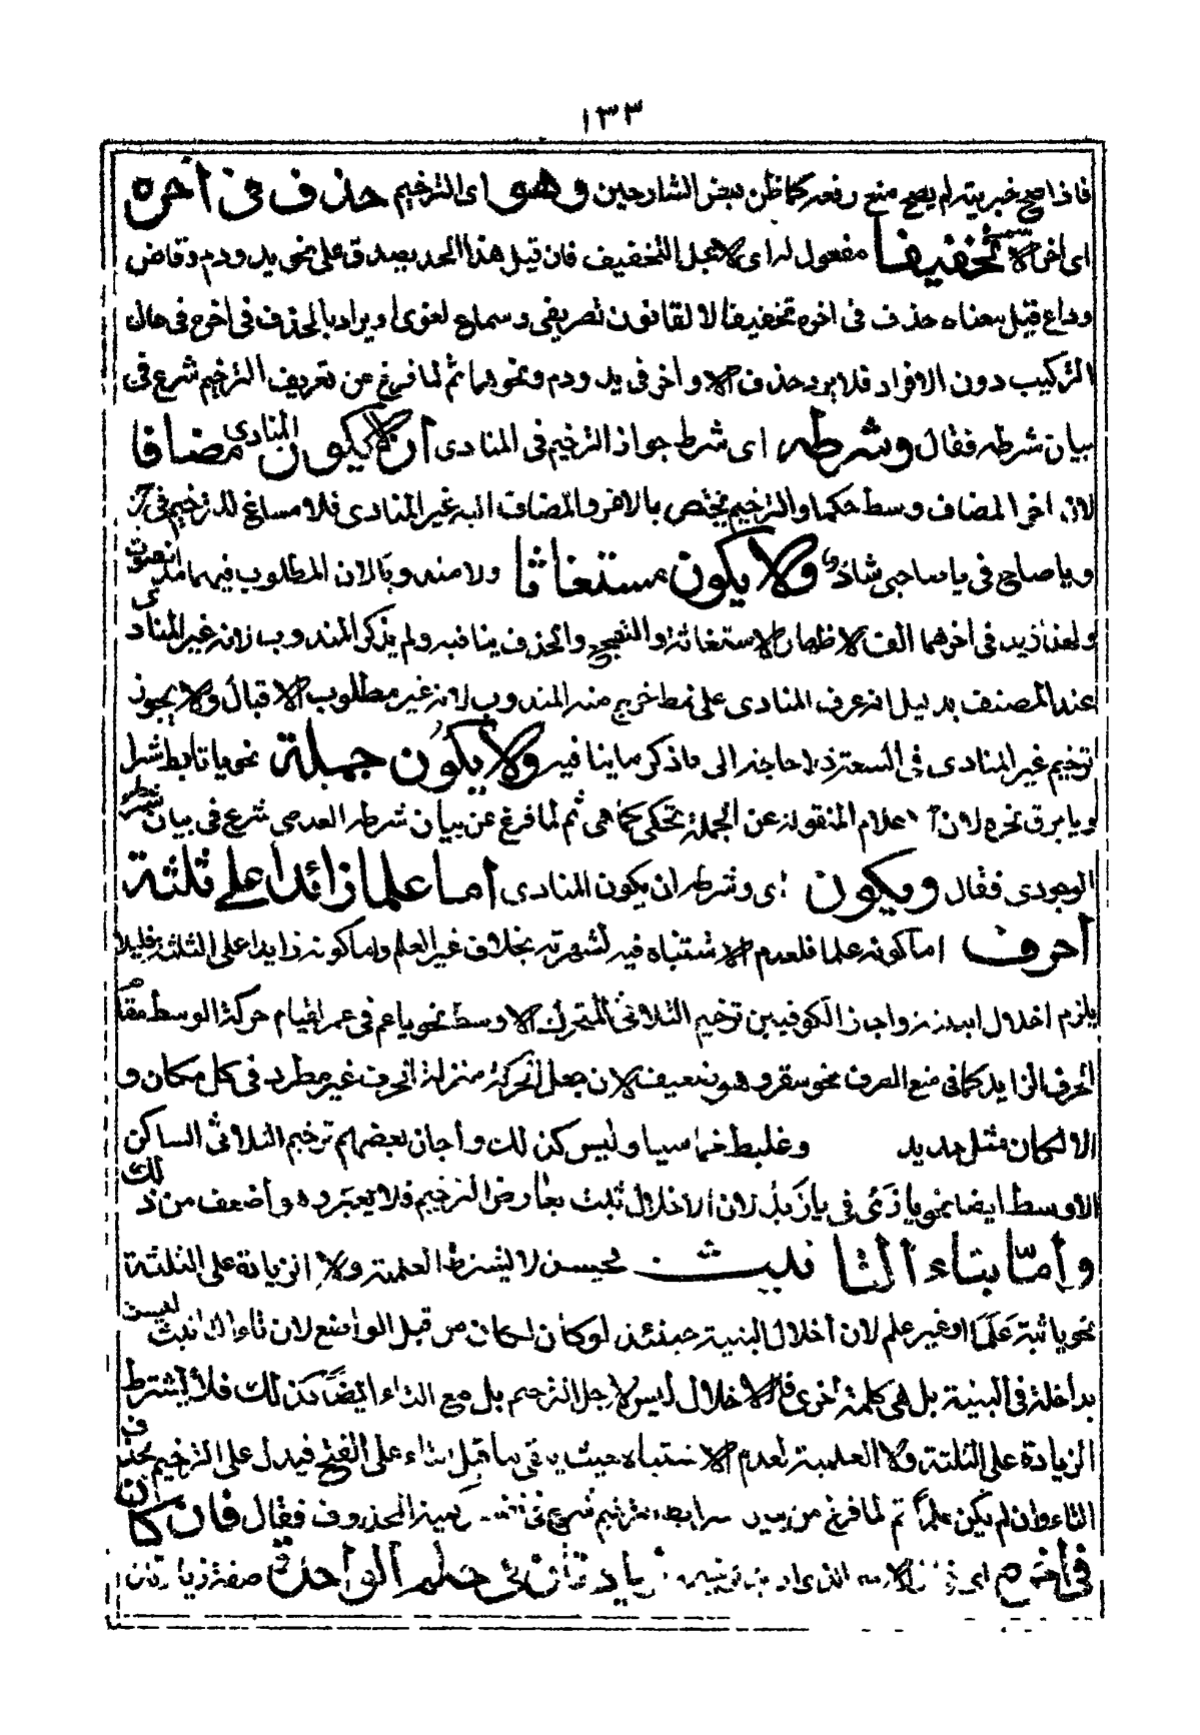 ١٣٣
فاذا صح خبريته لم يصح منع رفعه كما ظن بعض الشارحين وهو اى الترخيم حذف فى اخره
اى اخر الاسم تخفيفا مفعول له اى لاجل التخفيف فان قيل هذا الحد يصدق على نحو يد ودم وقاض
وداع قيل معناه حذف فى اخره تخفيفا لا لقانون تصريفى وسماع لغوى او يراد بالحذف فى اخره فى حال
التركيب دون الافراد فلا يرد حذف الاواخر فى يد ودم ونحوهما ثم لما فرغ عن تعريف الترخيم شرع فى
بيان شرطه فقال وشرطه اى شرط جواز الترخيم فى المنادى ان لا يكون المنادى مضافا
لان اخر المضاف وسط حكما والترخيم يختص بالاخر والمضاف اليه غير المنادى فلا مساغ للترخيم فى
ويا صاح فى يا صاحبى شاذ ولا يكون مستغاثا ولا مندوبا لان المطلوب فيهما مد الصوت
ولهذا زيد فى اخرهما الف لاظهار الاستغاثة والتفجع والحذف ينافيه ولم يذكر المندوب لانه غير المنادى
عند المصنف بدليل انه عرف المنادى على نمط خرج منه المندوب لانه غير مطلوب الاقبال ولا يجوز
ترخيم غير المنادى فى السعة فلا حاجة الى ما ذكر ما ينافيه ولا يكون جملة نحو يا تابط شرا
ويا برق نحره لان الاعلام المنقولة عن الجملة تحكى كما هى ثم لما فرغ عن بيان شرطه العدمى شرع فى بيان شرطه
الوجودى فقال ويكون اى وشرطه ان يكون المنادى اما علما زائدا على ثلثة
احرف اما كونه علما فلعدم الاشتباه فيه لشهرته بخلاف غير العلم واما كونه زايدا على الثلثة فليلا
يلزم اخلال ابنية واجاز الكوفيين ترخيم الثلاثى المتحرك الاوسط نحو يا عم فى عمر لقيام حركة الوسط مقام
الحرف الزايد كما فى منع الصرف نحو سقر وهو ضعيف لان جعل الحركة منزلة الحرف غير مطرد فى كل مكان و
الا لكان مثل جديد وغلبط خماسيا وليس كذلك واجاز بعضهم ترخيم الثلاثى الساكن
الاوسط ايضا نحو يا زى فى يا زيد لان الاخلال ثبت بعارض الترخيم فلا يعتبر ده واضعف من ذلك
واما بتاء التانيث فحينئذ لا يشترط العلمية ولا الزيادة على الثلثة
نحو يا ثبة علما او غير علم لان اخلال البنية حينئذ لو كان لكان من قبل الواضع لان تاء التانيث ليست
بداخلة فى البنية بل هى كلمة اخرى فالاخلال ليس لاجل الترخيم بل مع التاء ايضا كذلك فلا يشترط
الزيادة على الثلثة ولا العلمية لعدم الاشتباه حيث يبقى ما قبل التاء على الفتح فيدل على الترخيم بحذف
التاء وان لم يكن علما ثم لما فرغ من بيان شرايط الترخيم شرع فى كمية المحذوف فقال فان كان
فى اخره اى فى اخر الاسم الذى اريد ترخيمه زيادتان فى حكم الواحدة صفة زيادتان